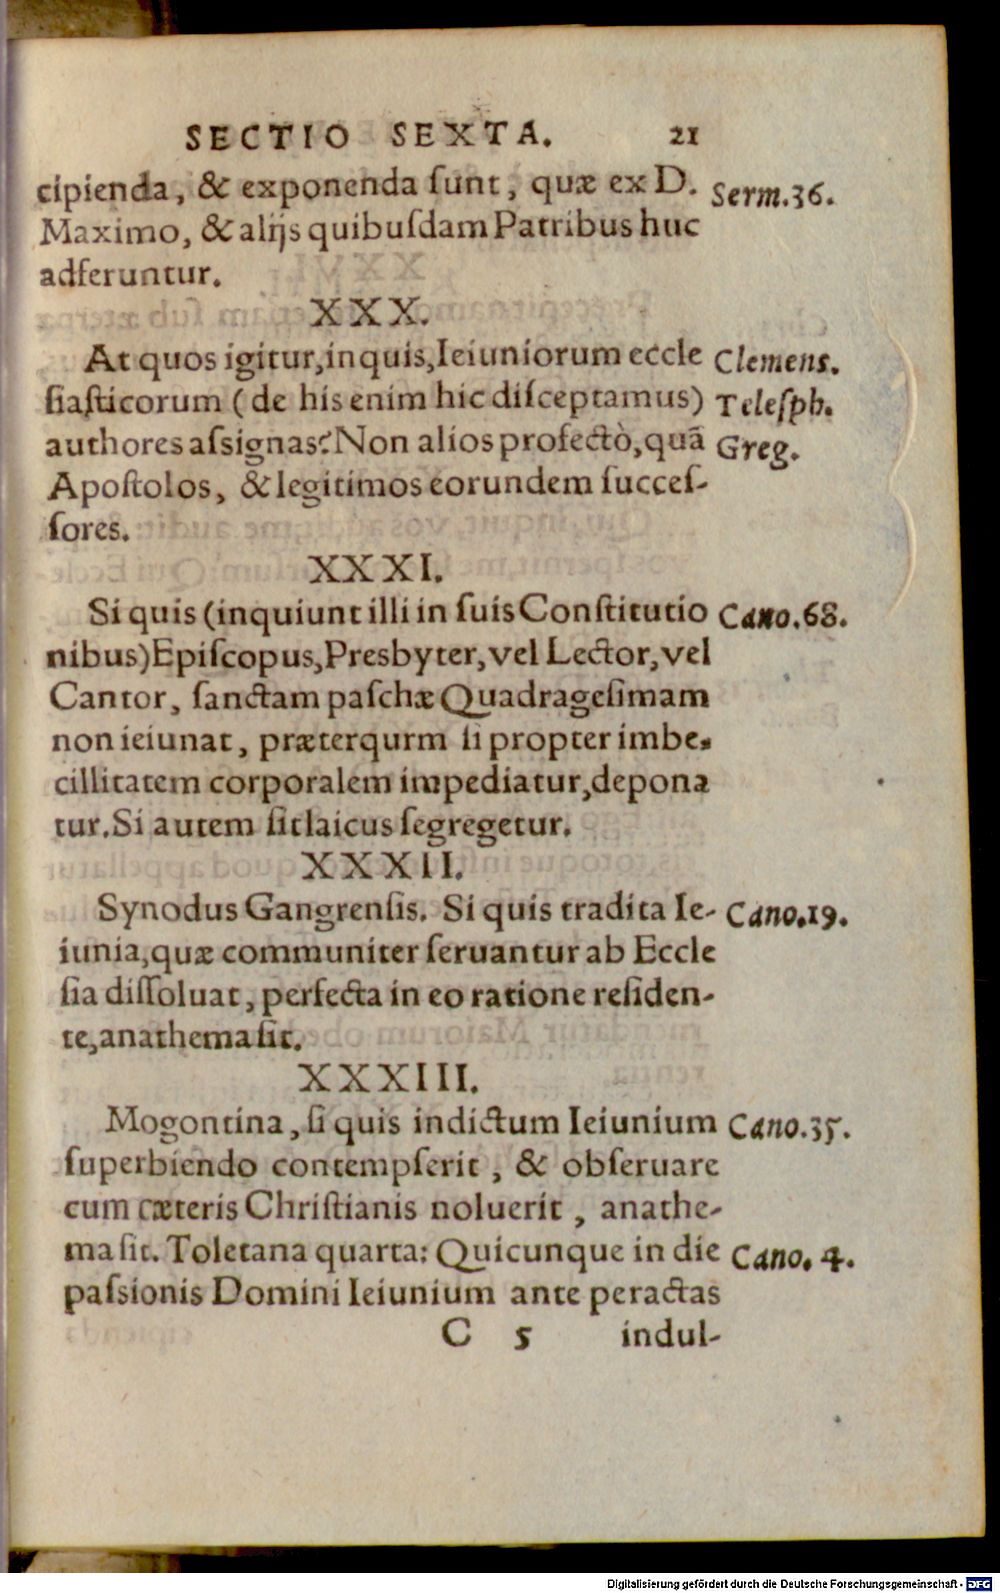 SECTIO SEXTA. 21
cipienda, & exponenda ſunt, quæ ex D. Serm.36.
Maximo, & alijs quibuſdam Patribus huc
adferuntur.
XXX.
At quos igitur,inquis,Ieiuniorum eccle Clemens.
ſiaſticorum (de his enim hic diſceptamus) Teleſph.
authores aſsignas? Non alios profectò,quã Greg.
Apoſtolos, & legitimos eorundem ſucceſ-
ſores.
XXXI.
Si quis (inquiunt illi in ſuis Conſtitutio Cano.68.
nibus)Epiſcopus,Presbyter,vel Lector,vel
Cantor, ſanctam paſchæ Quadrageſimam
non ieiunat, præterqurm ſi propter imbe-
cillitatem corporalem impediatur,depona
tur.Si autem ſit laicus ſegregetur.
XXXII.
Synodus Gangrenſis. Si quis tradita Ie- Cano.19.
iunia,quæ communiter ſeruantur ab Eccle
ſia diſſoluat, perfecta in eo ratione reſiden-
te,anathema ſit.
XXXIII.
Mogontina, ſi quis indictum Ieiunium Cano.35.
ſuperbiendo contempſerit, & obſeruare
cum cæteris Chriſtianis noluerit, anathe-
ma ſit. Toletana quarta: Quicunque in die Cano. 4.
paſsionis Domini Ieiunium ante peractas
C 5 indul-
Digitalisierung gefördert durch die Deutsche Forschungsgemeinschaft - DFG